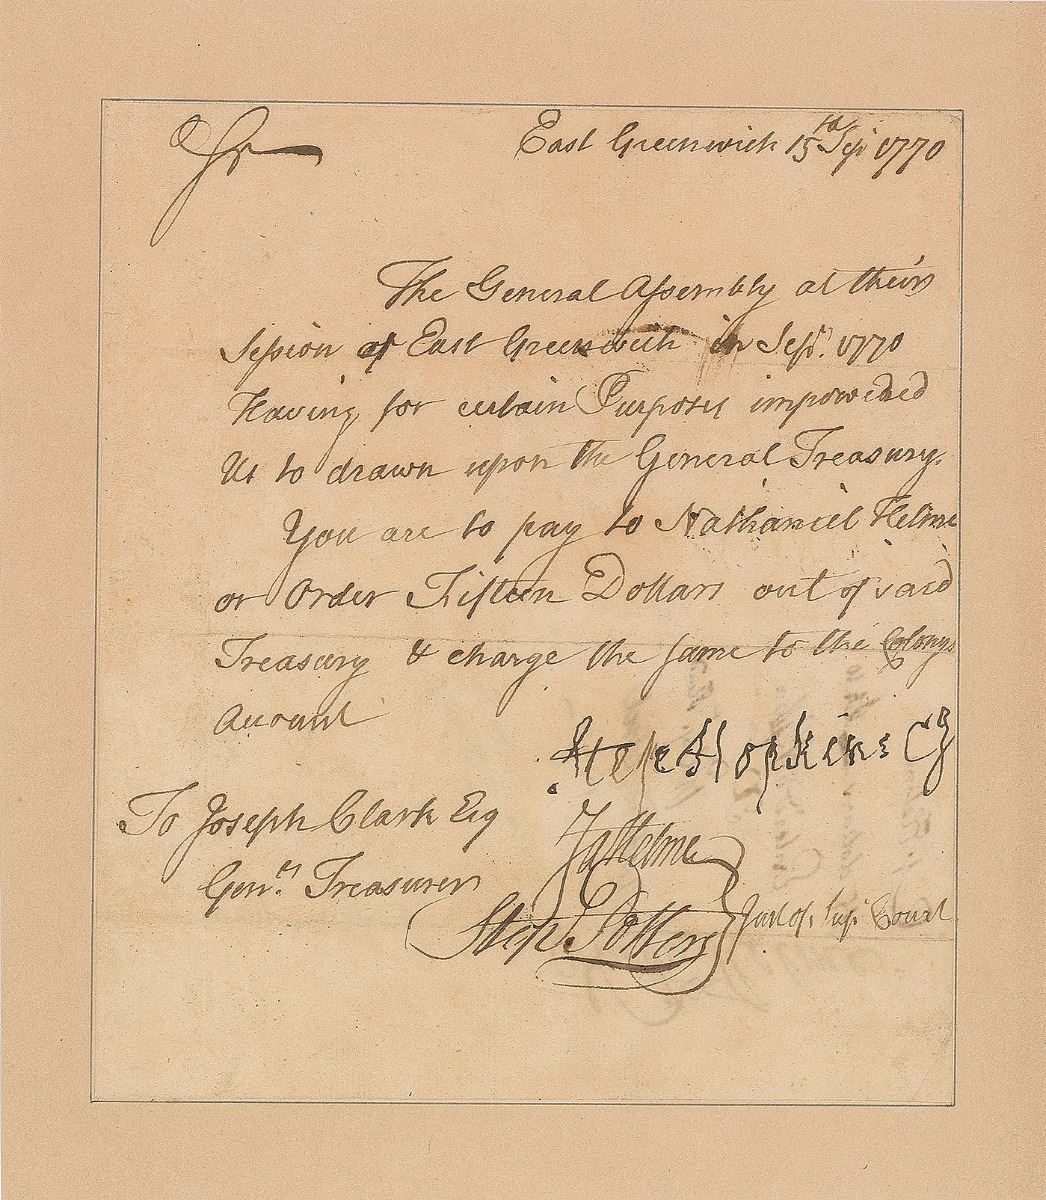 Sr East Greenwich 15th Sepr 1770
The General Assembly at their
Session at East Greenwich in Sepr. 1770
Having for certain Purposes impowered
Us to drawn upon the General Treasury.
You are to pay to Nathaniel Helme
or Order Fifteen Dollars out of said
Treasury & charge the same to the Colony's
Account
Step Hopkins CJ
To Joseph Clark Esq
Jas Helme
Genll. Treasurer
Stepn Potter Just of Supr Court